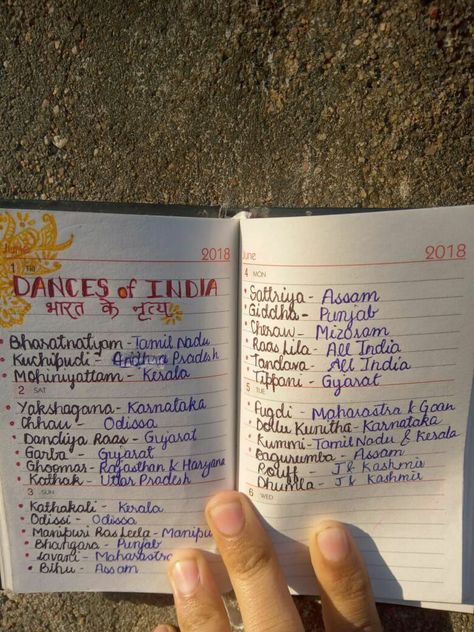 June
2018
1 FRI
DANCES of INDIA
भारत के नृत्य
• Bharatnatyam - Tamil Nadu
• Kuchipudi - Andhra Pradesh
• Mohiniyattam - Kerala
2 SAT
• Yakshagana - Karnataka
• Chhau - Odissa
• Dandiya Raas - Gujarat
• Garba - Gujarat
• Ghoomar - Rajasthan & Haryana
• Kathak - Uttar Pradesh
3 SUN
• Kathakali - Kerala
• Odissi - Odissa
• Manipuri Ras Leela - Manipu
• Bhangara - Punjab
• Lavani - Maharastra
• Bihu - Assam
June
2018
4 MON
• Sattriya - Assam
• Giddha - Punjab
• Cheraw - Mizoram
• Raas Lila - All India
• Tandava - All India
• Tippani - Gujarat
5 TUE
• Fugdi - Maharastra & Goan
• Dollu Kunitha - Karnataka
• Kummi - Tamil Nadu & Kerala
• Bagurumba - Assam
• Rouff - J & Kashmir
• Dhumla - J & Kashmir
6 WED